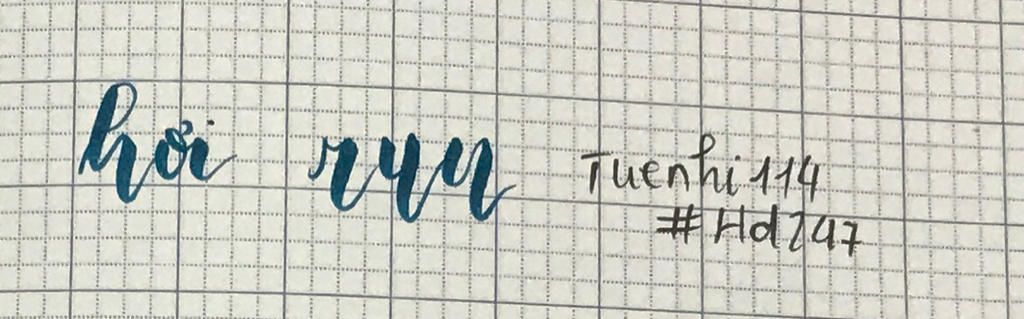 hơi run
Tuenhi114
#Hd247